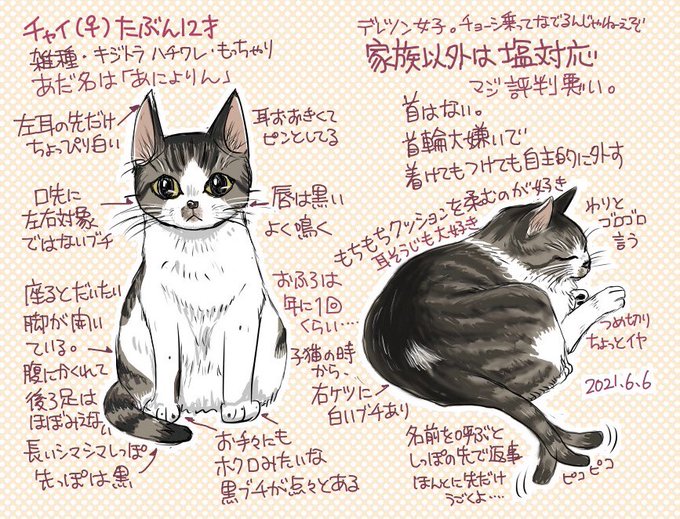 チャイ(♀)たぶん12才
雑種・キジトラ ハチワレ・もっちゃり
あだ名は「あにょりん」
左耳の先だけ
ちょっぴり白い
耳おおきくて
ピンとしてる
口先に
左右対象
ではないブチ
唇は黒い
よく鳴く
座るとだいたい
脚が開い
ている。
腹にかくれて
後ろ足は
ほぼみえない
長いシマシマしっぽ
先っぽは黒
おふろは
年に1回
くらい…
子猫の時
から、
右ケツに
白いブチあり
お手々にも
ホクロみたいな
黒ブチが点々とある
デレツン女子。チョーシ乗ってなでるんじゃねーぞ
家族以外は塩対応
マジ評判悪い。
首はない。
首輪大嫌いで
着けてもつけても自主的に外す
もちもちクッションを揉むのが好き
耳そうじも大好き
わりと
ゴロゴロ
言う
つめ切り
ちょっとイヤ
2021.6.6
名前を呼ぶと
しっぽの先で返事
ほんとに先だけ
うごくよ…
ピコピコ